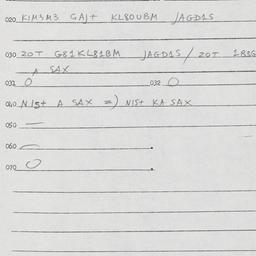 020 KIM3M3 GAJ+ KL80UBM JAGD1S
030 20T G81KL81BM JAGD1S / 20T 1B3G
1 SAX
031 0 032 0
040 NIS+ A SAX =) NIS+ KA SAX
050 —
060
070 0